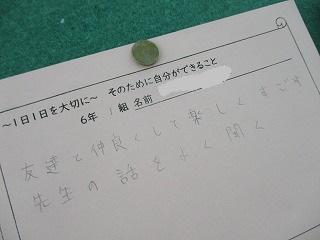 ～1日1日を大切に～　そのために自分ができること
6年　1組 名前
友達と仲良くして楽しくすごす
先生の話をよく聞く